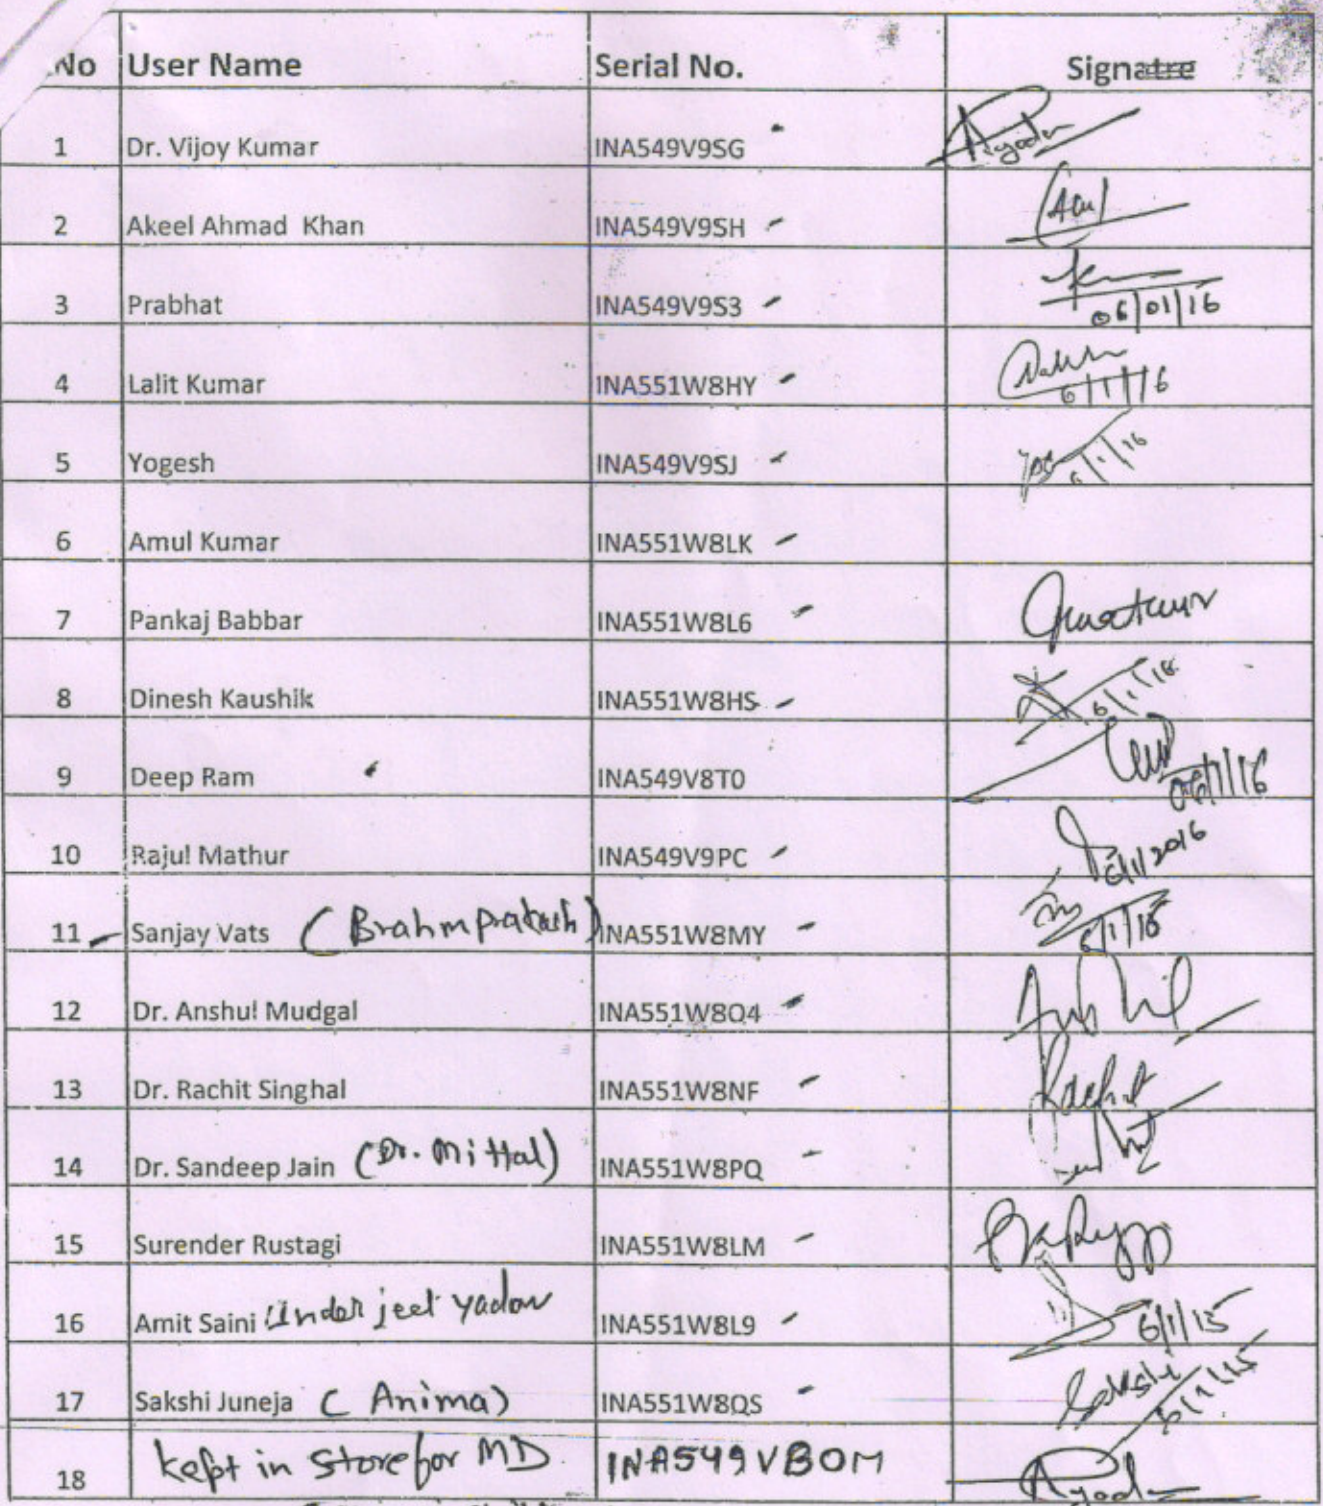 No User Name Serial No. Signatre
1 Dr. Vijoy Kumar INA549V9SG
2 Akeel Ahmad Khan INA549V9SH
3 Prabhat INA549V9S3 06/01/16
4 Lalit Kumar INA551W8HY 6/1/16
5 Yogesh INA549V9SJ 6/1/16
6 Amul Kumar INA551W8LK
7 Pankaj Babbar INA551W8L6
8 Dinesh Kaushik INA551W8HS 6/1/16
9 Deep Ram INA549V8T0 06/1/16
10 Rajul Mathur INA549V9PC 6/1/2016
11 Sanjay Vats (Brahmprakash) INA551W8MY 6/1/16
12 Dr. Anshul Mudgal INA551W8Q4
13 Dr. Rachit Singhal INA551W8NF Rachit
14 Dr. Sandeep Jain (Dr. Mittal) INA551W8PQ
15 Surender Rustagi INA551W8LM
16 Amit Saini (Inder jeet yadav INA551W8L9 6/1/15
17 Sakshi Juneja (Anima) INA551W8QS Sakshi 6/1/15
18 kept in store for MD INA549VBOM